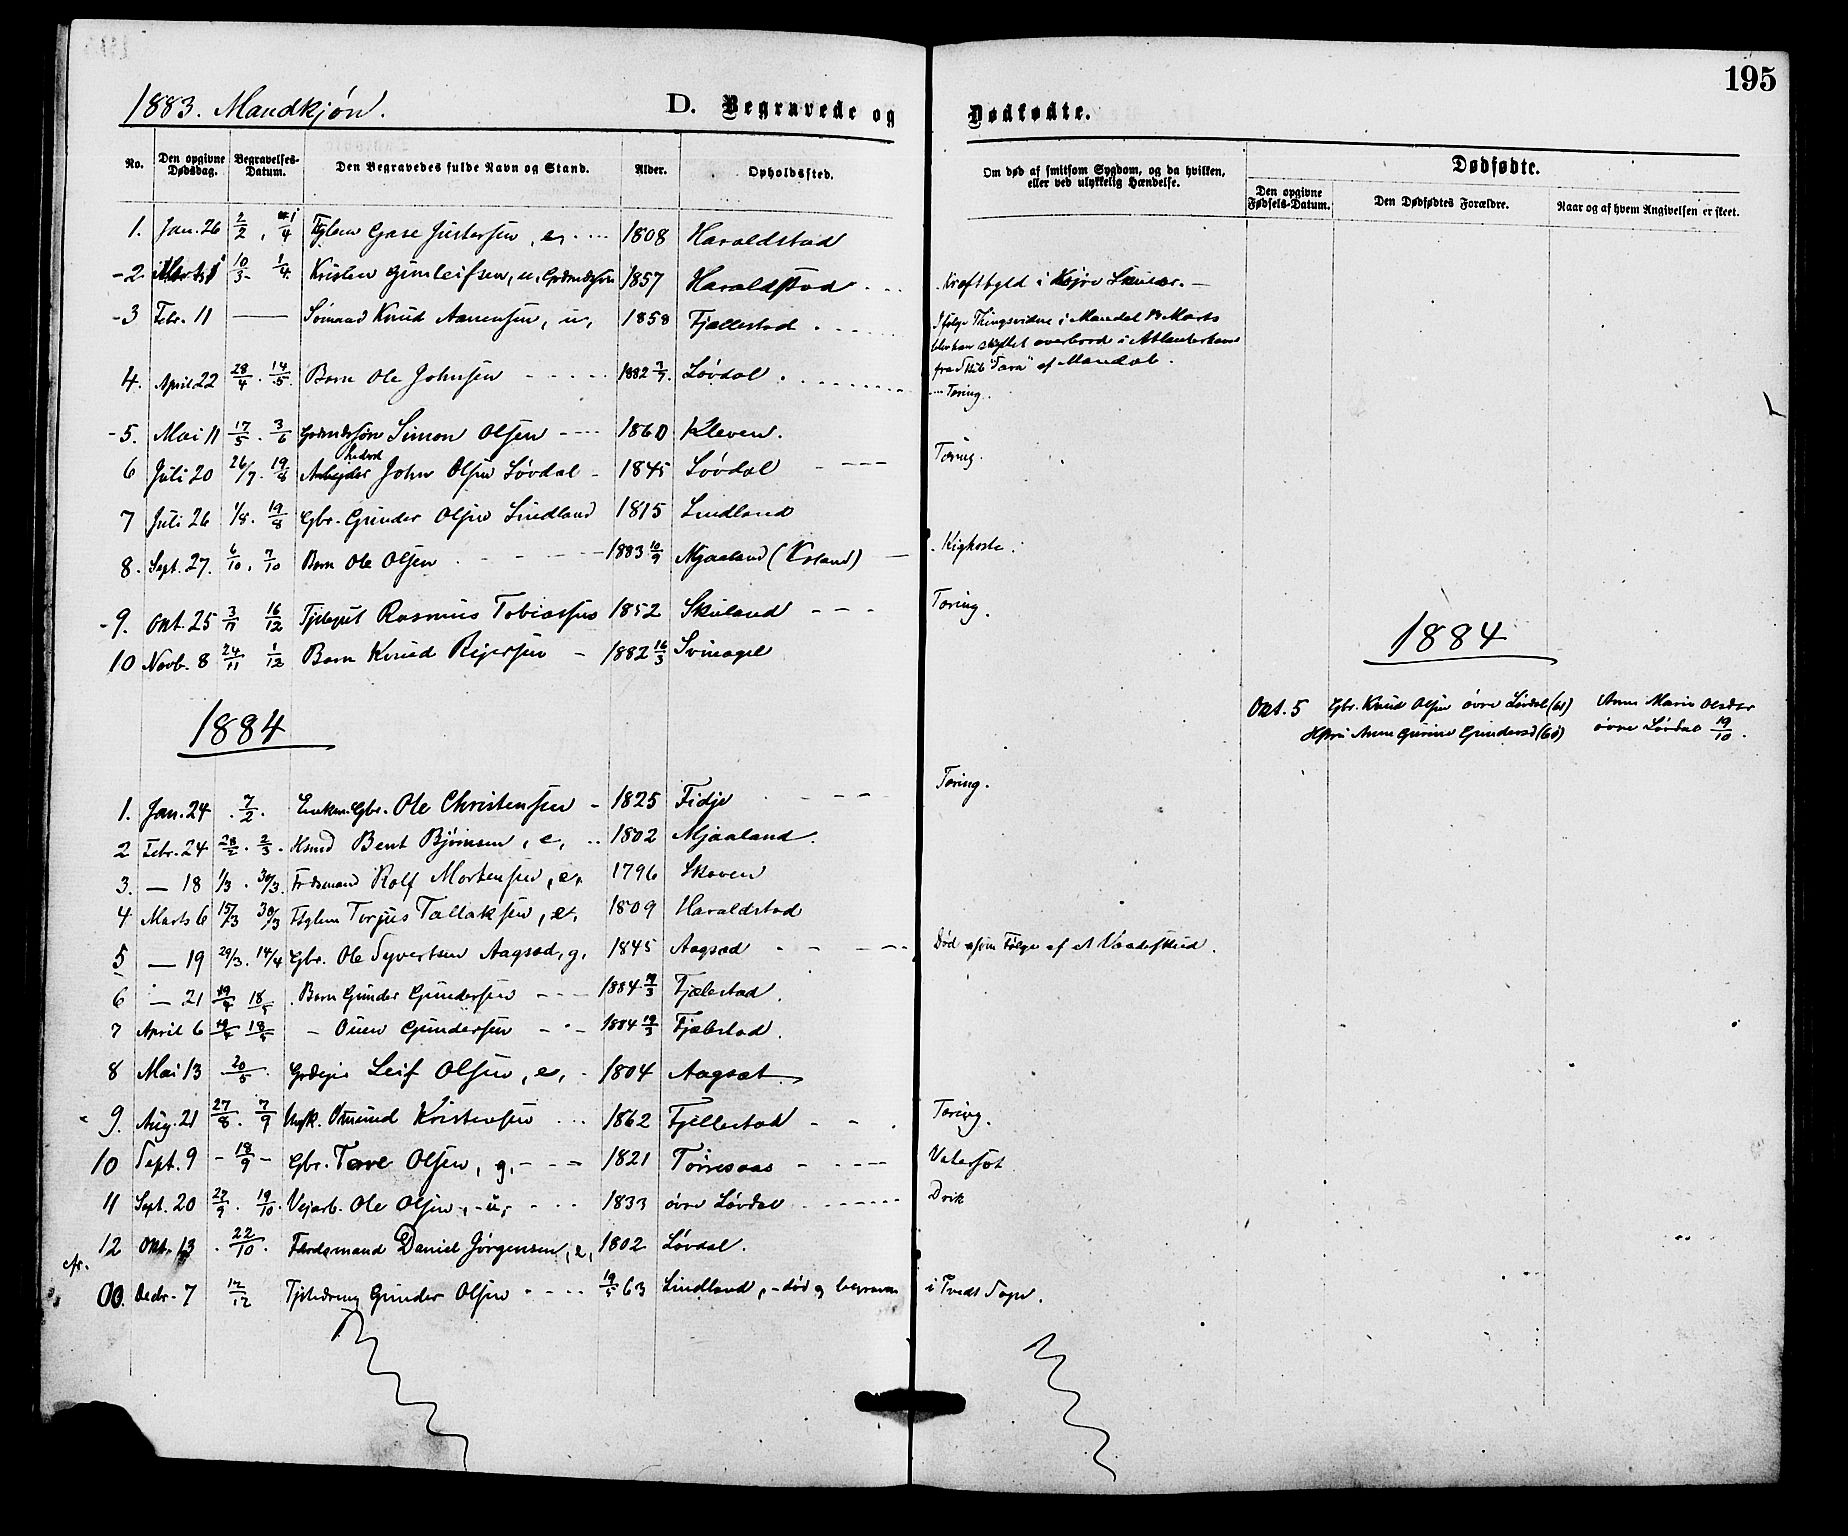 195
1883. Mandkjøn. D. Begravede og Dødfødte.
No. Den opgivne Dødsdag. Begravelses-Datum. Den Begravedes fulde Navn og Stand. Alder. Opholdssted. Om død af smitsom Sygdom, og da hvilken, eller ved ulykkelig Hændelse. Dødfødte.
Den opgivne Fødsels-Datum. Den Dødfødtes Forældre. Naar og af hvem Angivelsen er skeet.
1. Jan. 26 2/2, 1/4 1808 Haraldstad
2. 10/3 1/4 Kristen Gunleifsen, u, 1857 Haraldstad Kræftbyld i Højre Skulder.
3 Febr. 11 Sømand Knud Aanensen, u, 1858 Fjællestad Ifølge Thingsvidne i Mandal Marts
blev han skyllet overbord i Atlanterhavet
fra Skib "Tara" af Mandal.
4. April 22 28/4. 14/5 Barn Ole Johnsen 1882 Løvdal Tæring.
5. Mai 11 17/5. 3/6 Simon Olsen 1860 Kleven.
6 Juli 20 26/7. 19/8 Arbejder John Olsen Løvdal 1845 Løvdal Tæring.
7 Juli 26 1/8. 19/8 Gbr. Gunder Olsen Lindland 1815 Lindland
8. Sept. 27. 6/10, 7/10 Barn Ole Olsen 1883 10/9 Mjaaland Kighoste.
9. Okt. 25 3/11 16/12 Rasmus Tobiassen 1852 Skuland Tæring.
10 Novb. 8 24/11 1/12 Barn Knud Reiersen 1882 16/3 Svinagel
1884
1884
Okt. 5 Gbr. Knud Olsen øvre Løvdal Anne Marie Olsdtr
Anne Gurine Gundersd øvre Løvdal 19/10.
1. Jan. 24 7/2. Enkem. Gbr. Ole Christensen 1825 Fidje Tæring.
2 Febr. 24 28/2. 2/3. Bent Bjørnsen, e, 1802 Mjaaland.
3. — 18 1/3. 30/3. Rolf Mortensen, e, 1796 Skoven
4 Marts 6 15/3 30/3 Torjus Tallaksen, e, 1809 Haraldstad
5 — 19 29/3. 14/4 Gbr. Ole Syvertsen Aagsæd, g, 1845 Aagsæd Død som Følge af et Vaadeskud.
6 — 21 Barn Gunder Gundersen 1884 19/3 Fjælestad
7 April 6 — Gundersen 1884 19/3 Fjælestad.
8 Mai 13 20/5. Leif Olsen, e, 1804 Aagsæt
9. Aug. 21 27/8. 7/9 Ungk. Omund Kristensen 1862 Fjellestad Tæring.
10 Sept. 9 18/9 Gbr. Terve Olsen, g, 1821 Tørresaas Vatersot
11 Sept. 20 27/9. 19/10. Vejarb. Ole Olsen, u, 1833 øvre Løvdal Drik
12 Okt. 13 22/10. Daniel Jørgensen, e, 1802 Løvdal.
00. Decbr. 7 12/12 Tjenestedreng Gunder Olsen 19/5 63 Lindland, død og begraven i Tvedt Sogn.